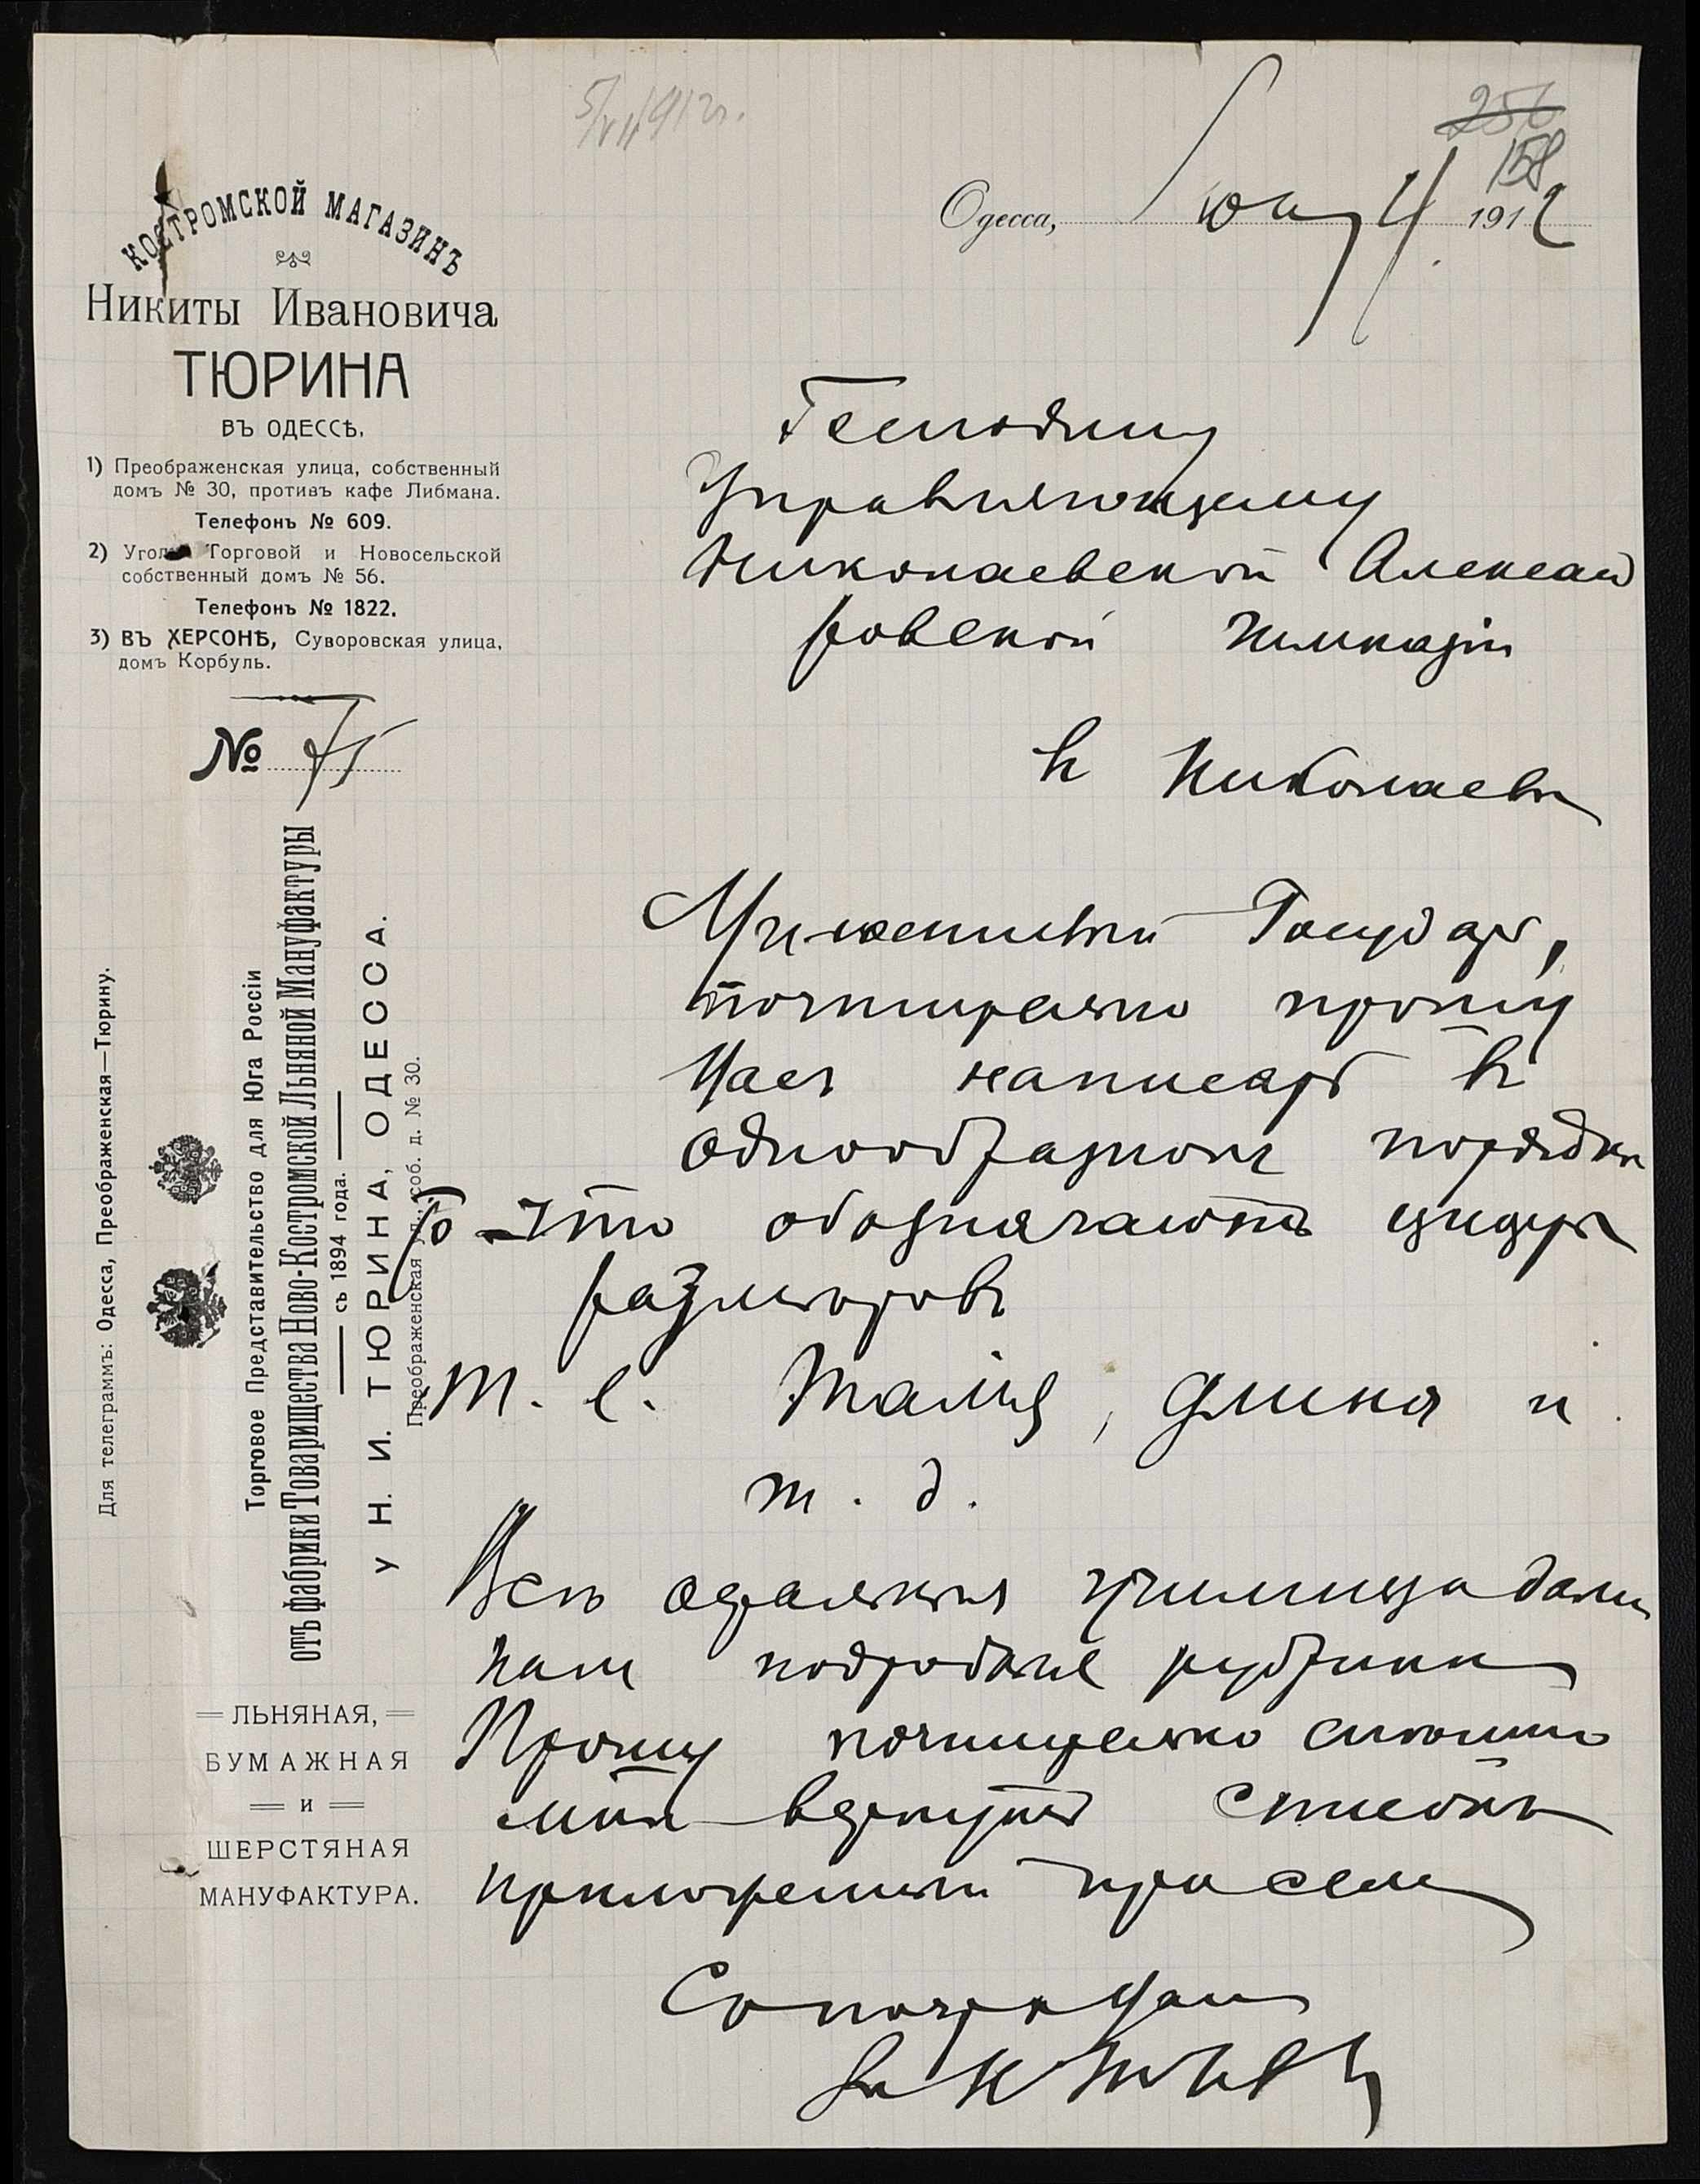 5/VII 912 г.
256
158
КОСТРОМСКОЙ МАГАЗИНЪ
Никиты Ивановича
ТЮРИНА
ВЪ ОДЕССѢ,
1) Преображенская улица, собственный
домъ № 30, противъ кафе Либмана.
Телефонъ № 609.
2) Уголъ Торговой и Новосельской
собственный домъ № 56.
Телефонъ № 1822.
3) ВЪ ХЕРСОНѢ, Суворовская улица,
домъ Корбуль.
№ 75
Для телеграммъ: Одесса, Преображенская—Тюрину.
Торговое Представительство для Юга Россіи
отъ фабрики Товарищества Ново-Костромской Льняной Мануфактуры
съ 1894 года.
у Н. И. ТЮРИНА, ОДЕССА.
Преображенская ул., соб. д. № 30.
ЛЬНЯНАЯ,
БУМАЖНАЯ
и
ШЕРСТЯНАЯ
МАНУФАКТУРА.
Одесса, 1912
Господину
Управляющему
Николаевской Александ
ровской Гимназіи
в Николаевѣ
Милостивый Государь,
почтительно прошу
Вас написать в
однообразном порядкѣ
что обозначают цифры
размѣров
т. е. Талія, длина и
т. д.
Всѣ остальныя училища дали
нам подробные рубрики
Прошу почтительно спѣшно
мнѣ вернуть список
приложенный при сем
С почтен